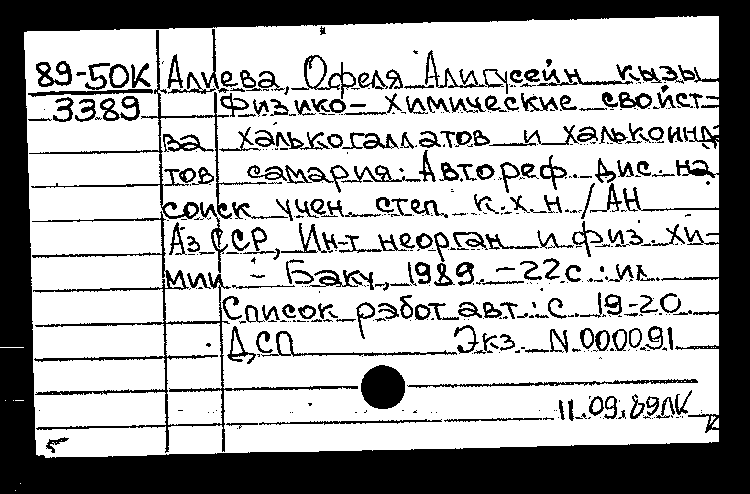 89-50К Алиева, Офеля Алигусейн кызы
3389 Физико-химические свойст-
ва халькогаллатов и халькоинда-
тов самария: Автореф. дис. на
соиск учен. степ. к.х.н / АН
АзССР, Ин-т неорган и физ. хи-
мии - Баку, 1989. - 22с.: ил
Список работ авт.: с 19-20
ДСП Экз. N 000091
11.09.89ЛК
5 К